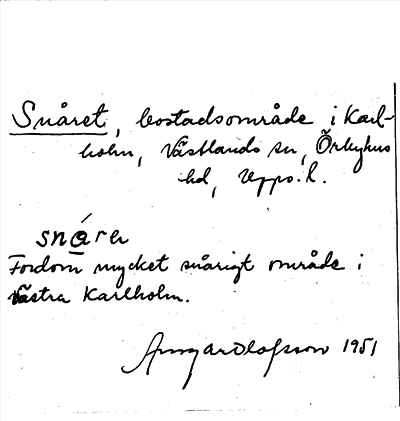 Snåret, bostadsområde i Karl-
holm, Västlands sn, Örbyhus
hd, Upps. l.
snárer
Fordom mycket snårigt område i
Västra Karlholm.
Ansgar Olofsson 1951